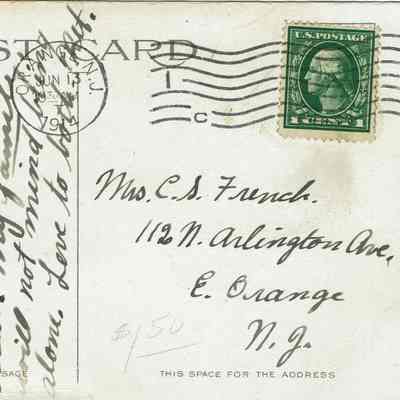 POST CARD
ORANGE, N.J.
JUN 13
191
1
C
U.S. POSTAGE
1 CENT 1
Mrs. C. S. French.
112 N. Arlington Ave,
E. Orange
N. J.
$1.50
THIS SPACE FOR THE ADDRESS
SAGE
my family
will not mind being
alone. Love to both